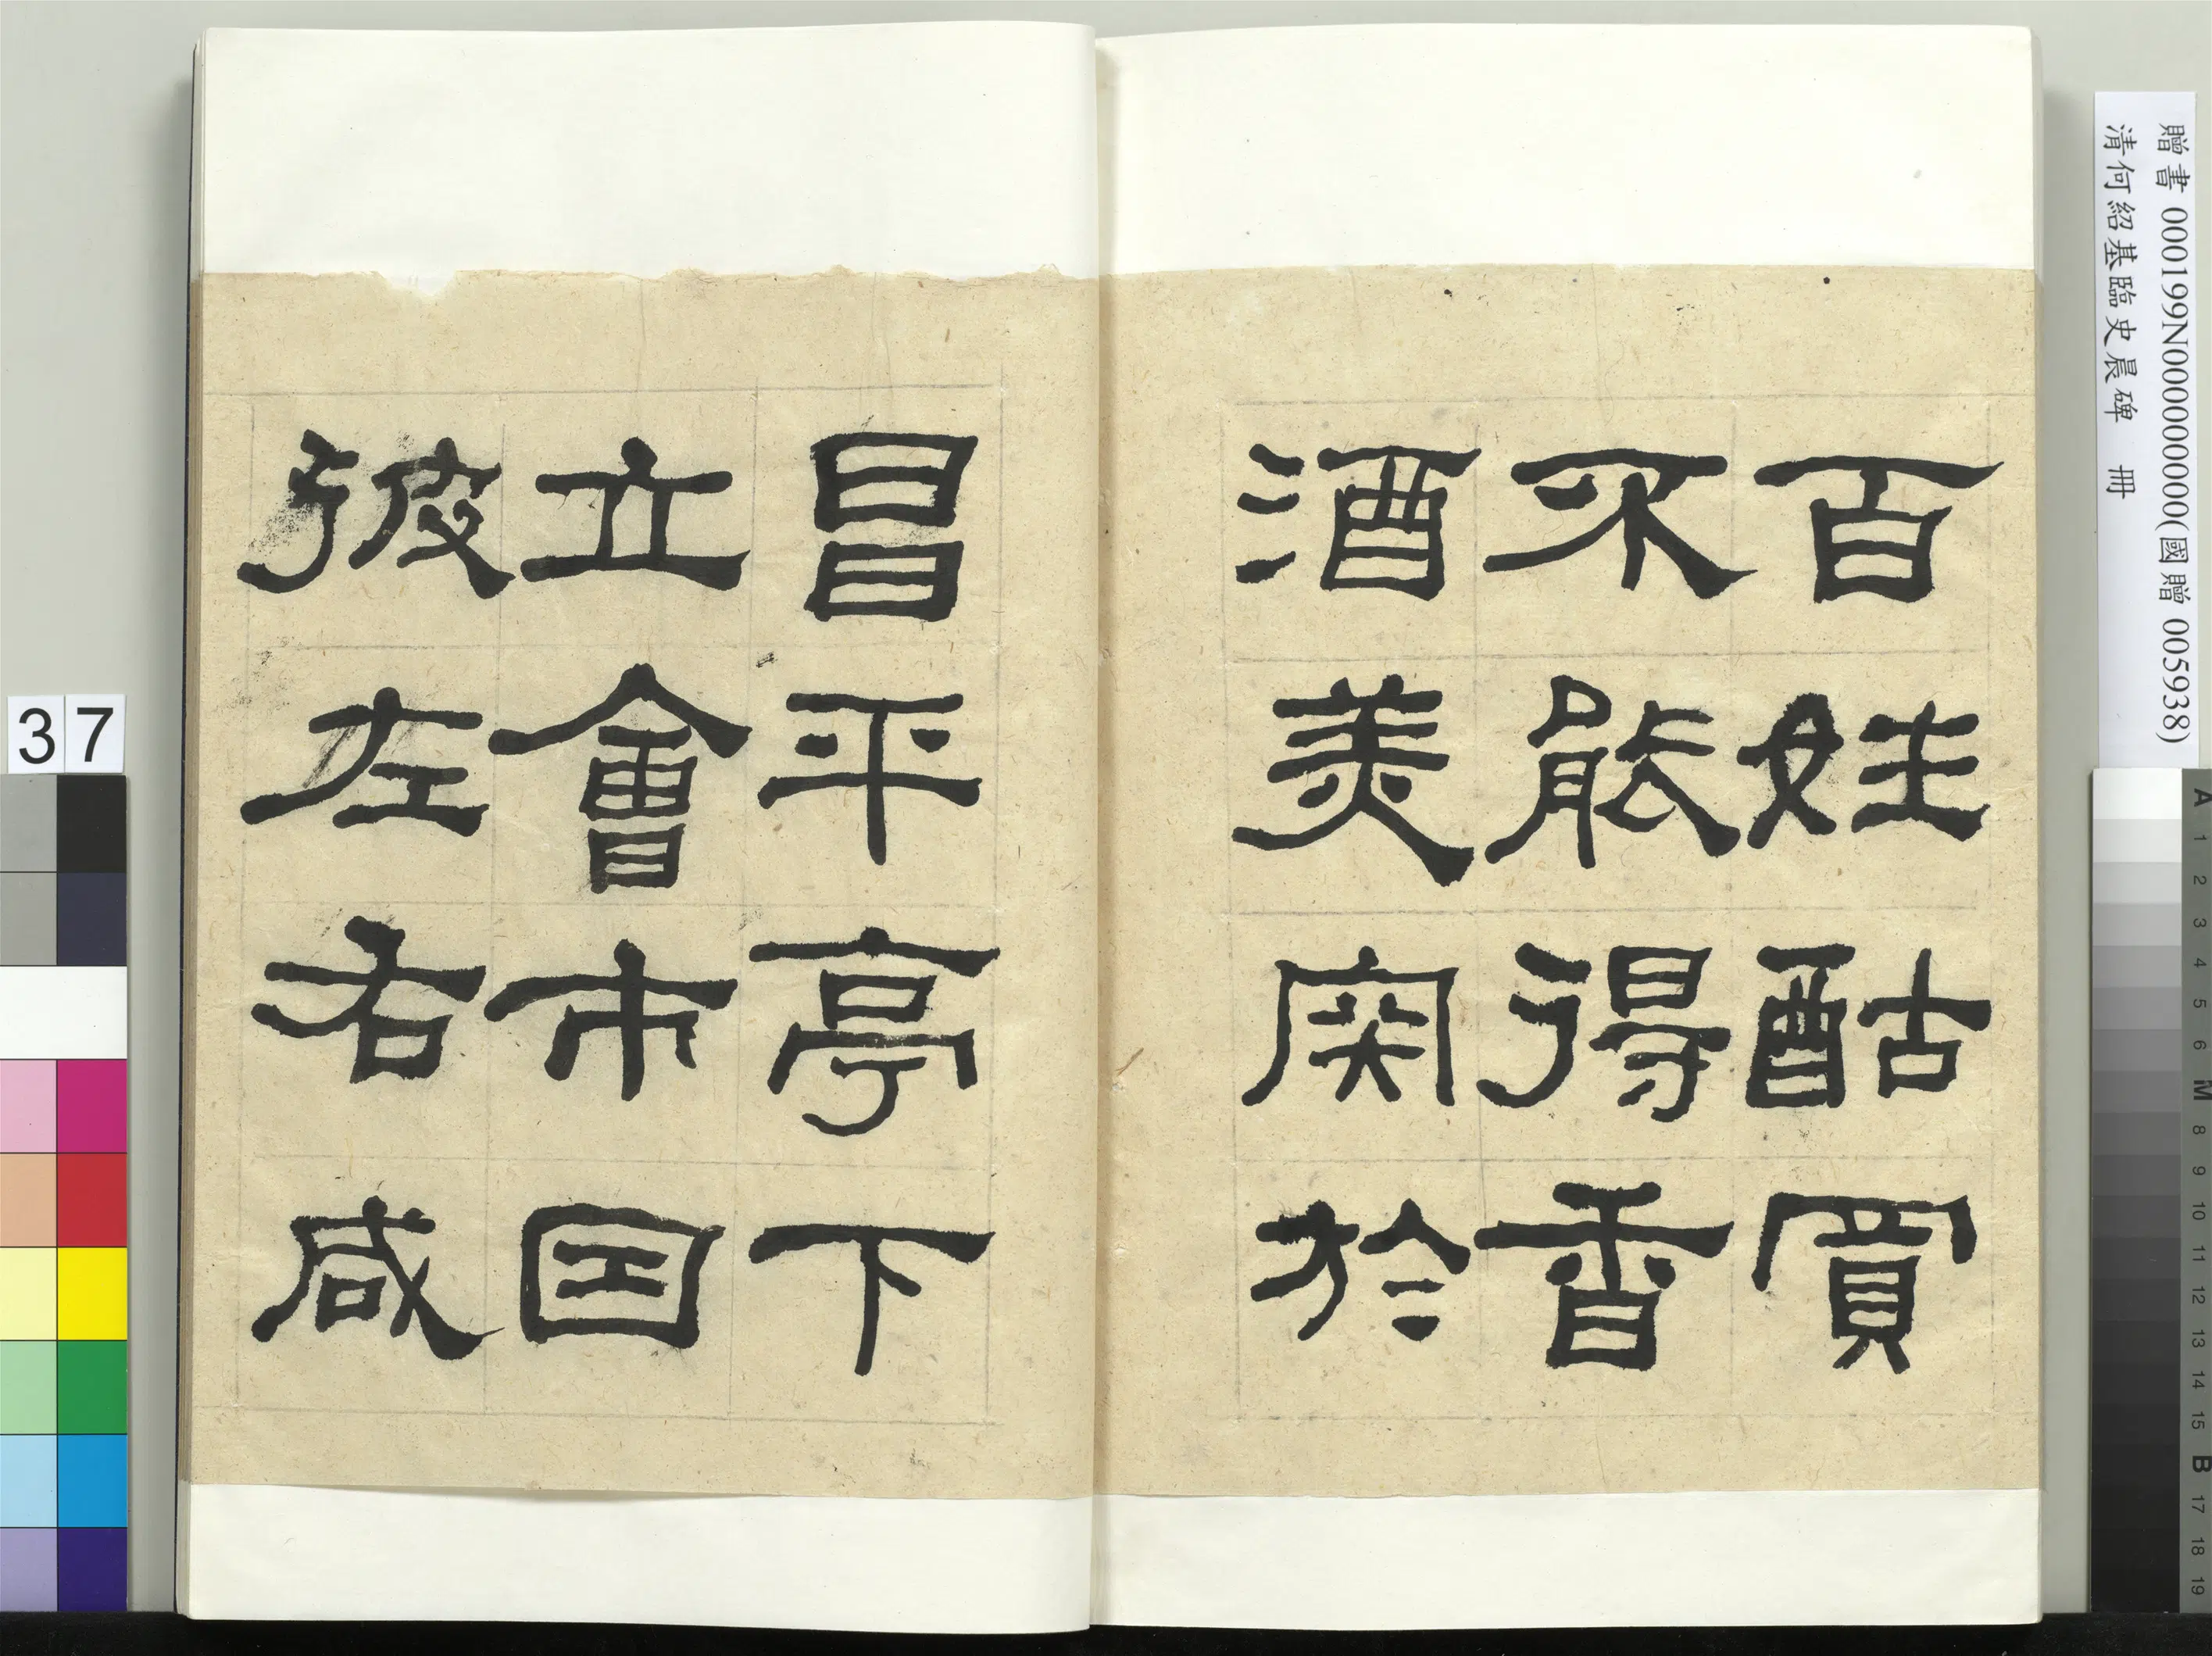 百姓酤買
不能得香
酒美肉於
昌平亭下
立會市因
彼左右咸
贈書 000199N000000000(國贈 005938)
清何紹基臨史晨碑 冊
37
A 1 2 3 4 5 6 M 8 9 10 11 12 13 14 15 B 17 18 19